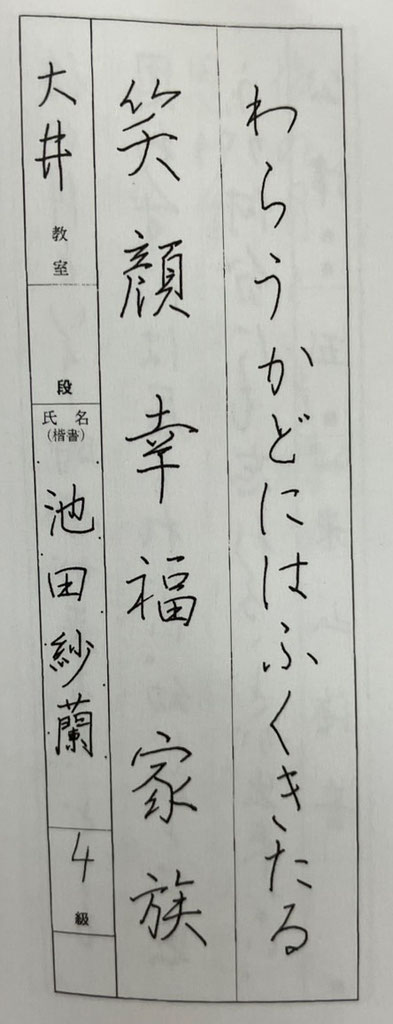 わらうかどにはふくきたる
笑顔幸福家族
大井教室
段
氏名
(楷書)
池田紗蘭
4級